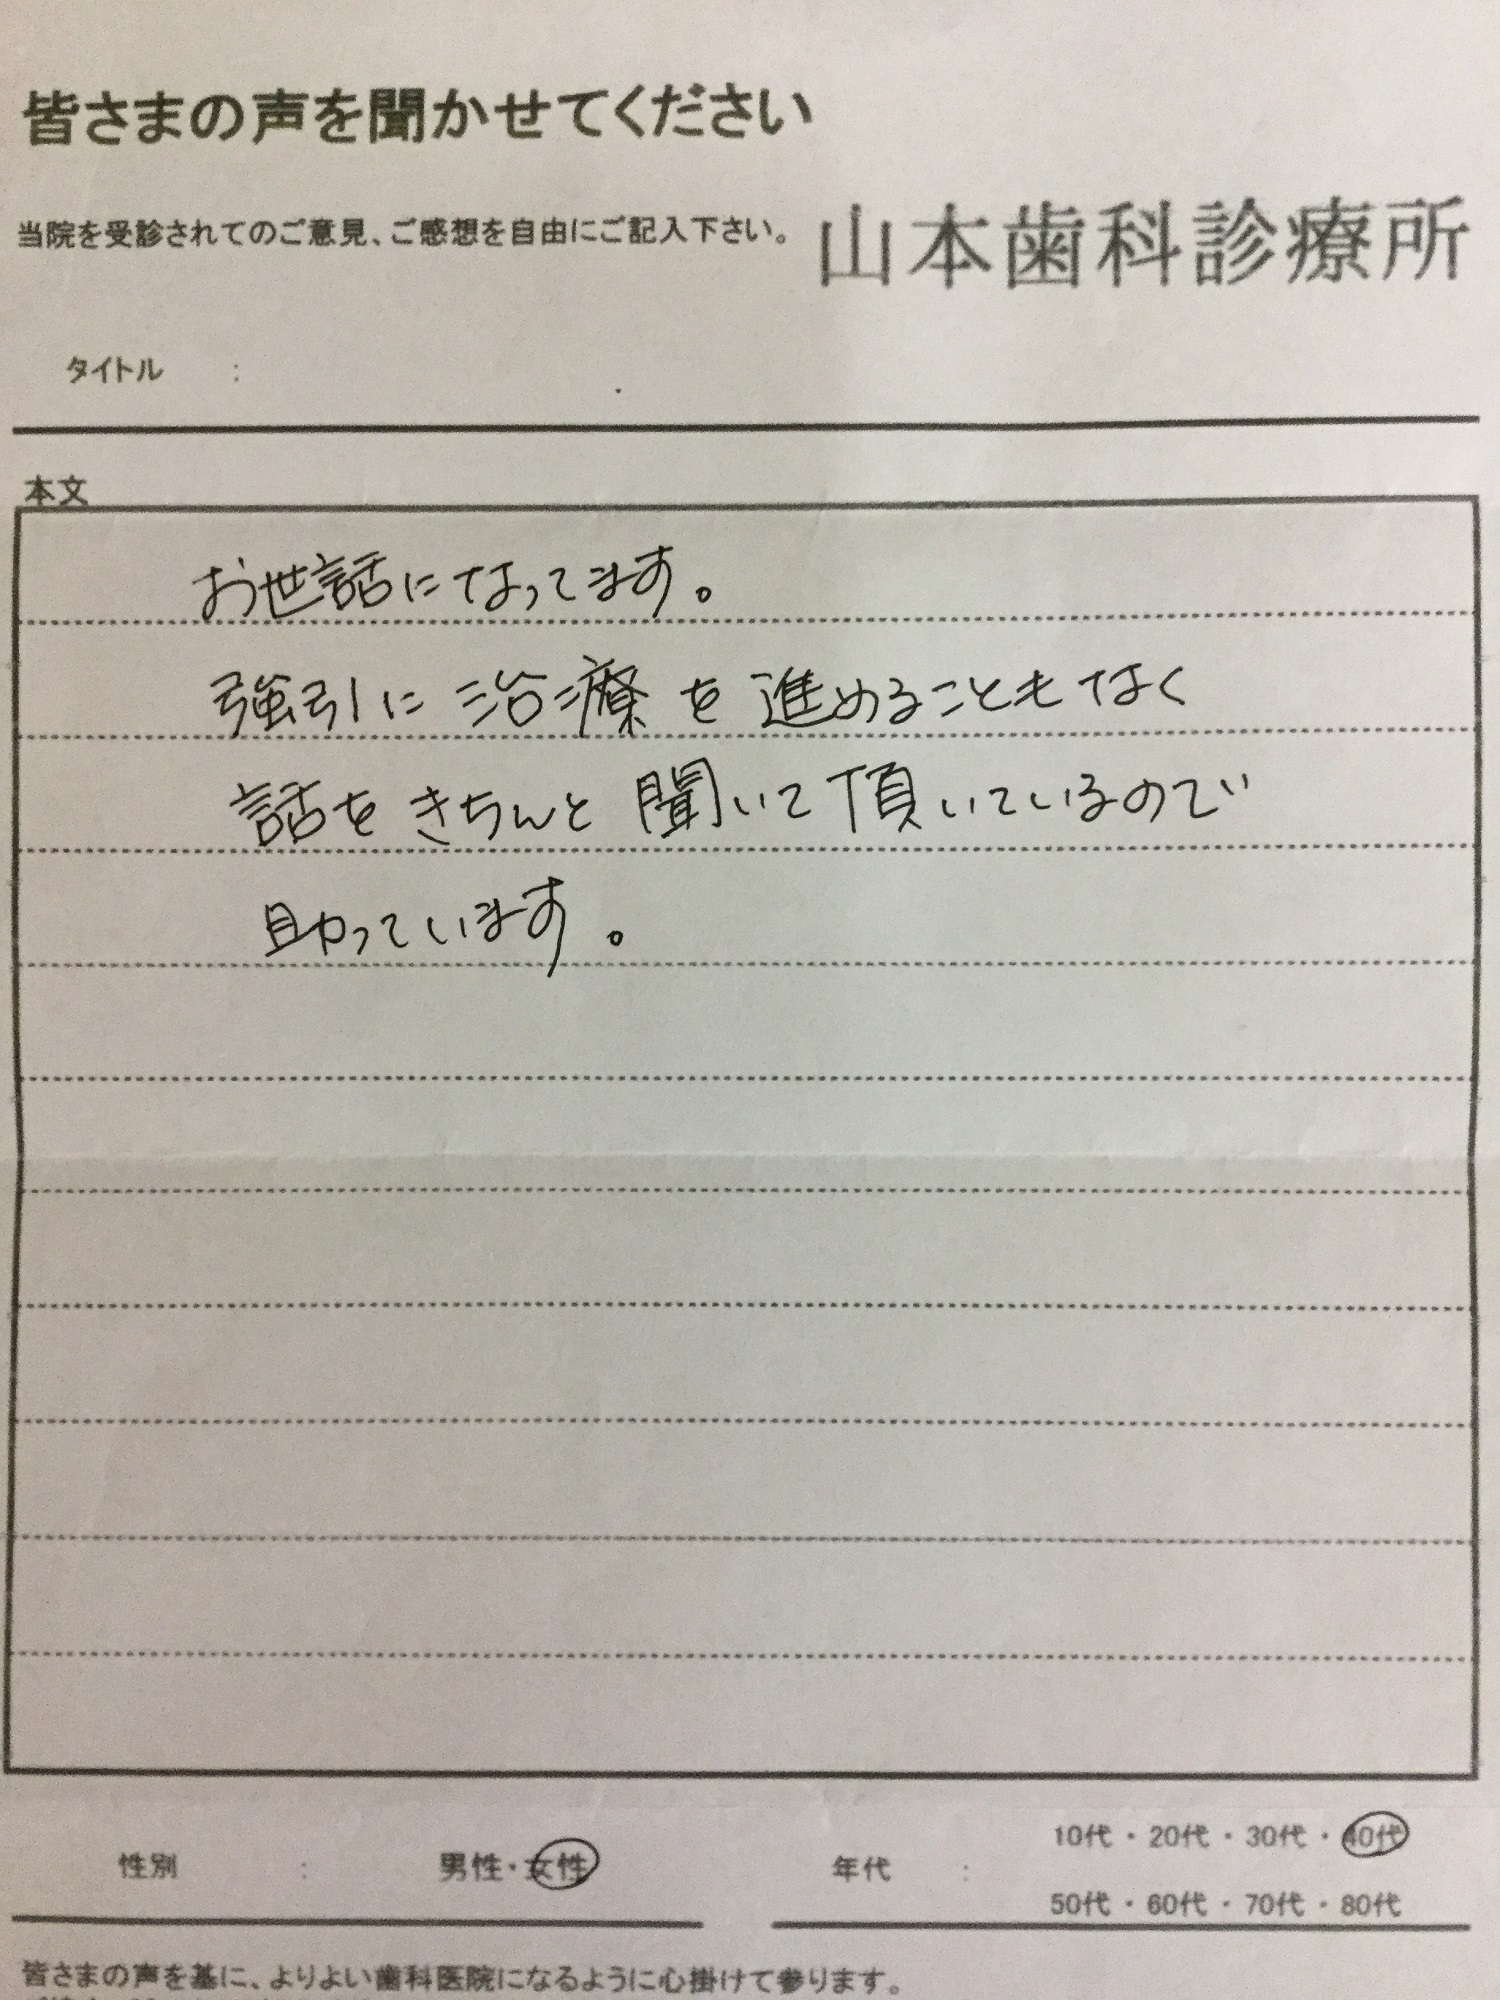 皆さまの声を聞かせてください
当院を受診されてのご意見、ご感想を自由にご記入下さい。
山本歯科診療所
タイトル :
本文
お世話になってます。
強引に治療を進めることもなく
話をきちんと聞いて頂いているので
助っています。
性別 : 男性・女性
年代 : 10代・20代・30代・40代
50代・60代・70代・80代
皆さまの声を基に、よりよい歯科医院になるように心掛けて参ります。